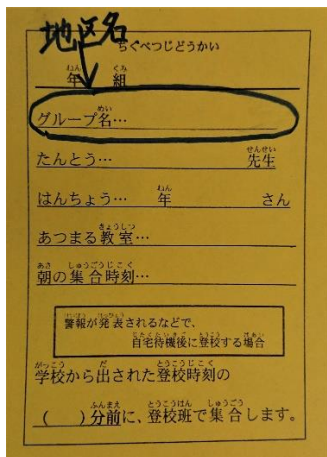 地区名
ちくべつじどうかい
年 組
グループ名…
たんとう… 先生
はんちょう… 年 さん
あつまる教室…
朝の集合時刻…
警報が発表されるなどで、
自宅待機後に登校する場合
学校から出された登校時刻の
( )分前に、登校班で集合します。